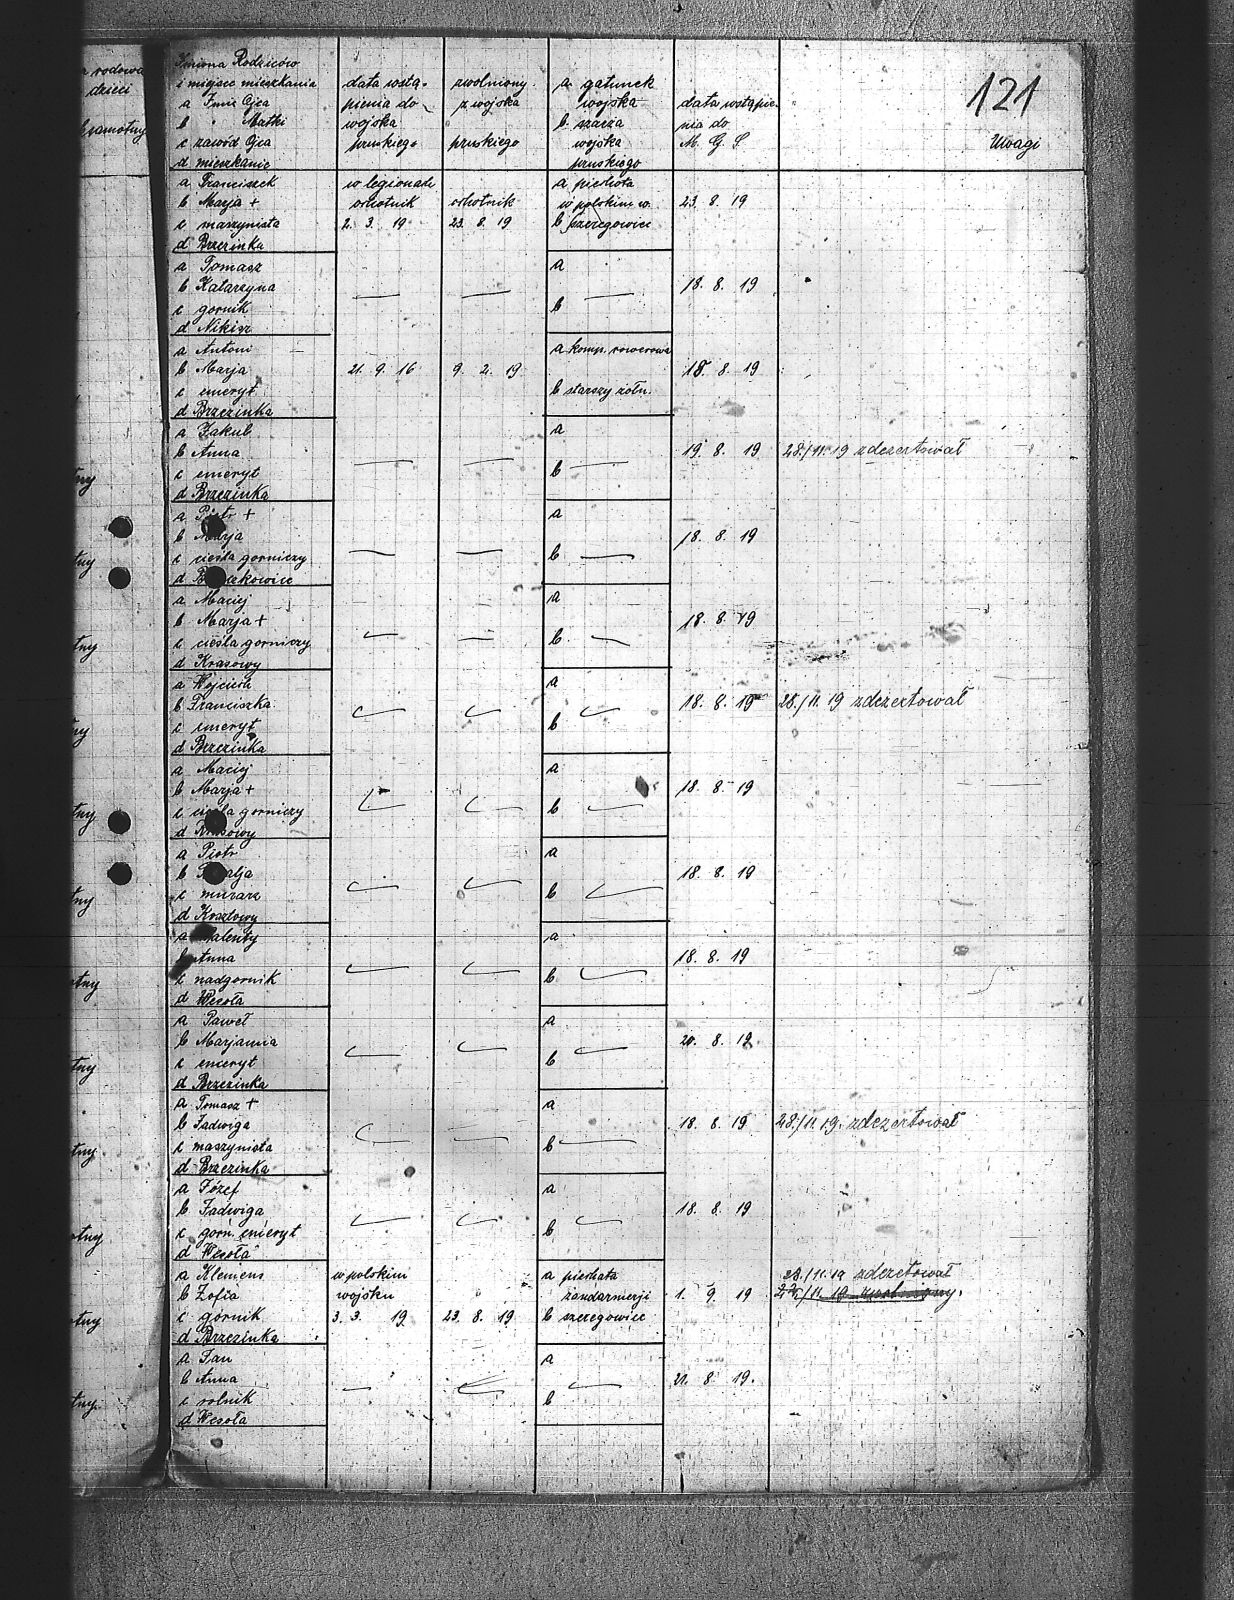 121
a rodowa
dzieci
gramotny
Imiona Rodziców
i miejsce mieszkania
a Imie Ojca
b " Matki
c zawód Ojca
d mieszkanie
data wstą-
pienia do
wojska
pruskiego
zwolniony
z wojska
pruskiego
a gatunek
wojska
b szarza
wojska
pruskiego
data wstąpie-
nia do
M. G. S
Uwagi
a Franciszek
b Marja +
c maszynista
d Brzezinka
w legionach
ochotnik
2. 3. 19
ochotnik
23. 8. 19
a piechota
w polskim w.
b szeregowiec
23. 8. 19
a Tomasz
b Katarzyna
c gornik
d Nikisz
a
b
18. 8. 19
a Antoni
b Marja
c emeryt
d Brzezinka
21. 9. 16
9. 2. 19
a komp. rowerowa
b starszy żołn.
18. 8. 19
a Jakub
b Anna
c emeryt
d Brzezinka
a
b
19. 8. 19
28./11. 19 zdezertował
a Piotr +
b Marja
c cieśla gorniczy
a
b
18. 8. 19
a Maciej
b Marja +
c cieśla gorniczy
d Krasowy
a
b
18. 8. 19
a Wojciech
b Franciszka
c emeryt
d Brzezinka
a
b
18. 8. 19
28./11. 19 zdezertował
a Maciej
b Marja +
c cieśla gorniczy
d Krasowy
a
b
18. 8. 19
a Piotr
b
c murarz
d Kosztowy
a
b
18. 8. 19
a Walenty
b Anna
c nadgornik
d Wesoła
a
b
18. 8. 19
a Paweł
b Marjanna
c emeryt
d Brzezinka
a
b
20. 8. 19
a Tomasz +
b Jadwiga
c maszynista
d Brzezinka
a
b
18. 8. 19
28./11. 19. zdezertował
a Józef
b Jadwiga
c górn. emeryt
d Wesoła
a
b
18. 8. 19
a Klemens
b Zofia
c górnik
d Brzezinka
w polskim
wojsku
3. 3. 19
23. 8. 19
a piechota
żandarmerji
b szeregowiec
1. 9 19
28./11. 19 zdezertował
a Jan
b Anna
c rolnik
d Wesoła
a
b
21. 8. 19.